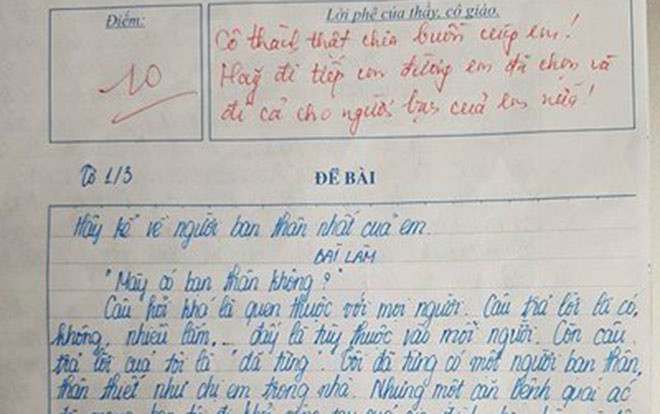 Điểm:
Lời phê của thầy, cô giáo.
10
Cô thành thật chia buồn cùng em!
Hãy đi tiếp con đường em đã chọn và
đi cả cho người bạn của em nữa!
Tờ 1/3
ĐỀ BÀI
Hãy kể về người bạn thân nhất của em.
BÀI LÀM
"Mày có bạn thân không?"
Câu hỏi khá là quen thuộc với mọi người. Câu trả lời là có,
không, nhiều lắm,... đấy là tùy thuộc vào mỗi người. Còn câu
trả lời của tôi là "đã từng". Tôi đã từng có một người bạn thân,
thân thiết như chị em trong nhà. Nhưng một căn bệnh quái ác